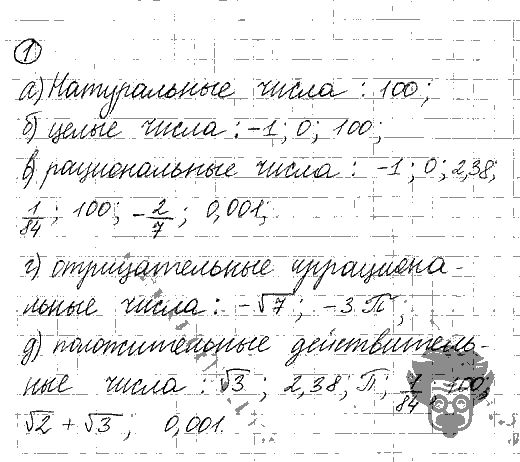 1
а) Натуральные числа : 100;
б) целые числа : -1; 0; 100;
в) рациональные числа : -1; 0; 2,38;
1/84; 100; -2/7; 0,001;
г) отрицательные иррациона-
льные числа : -√7; -3π;
д) положительные действитель-
ные числа : √3; 2,38; π; 1/84; 100;
√2 + √3; 0,001.